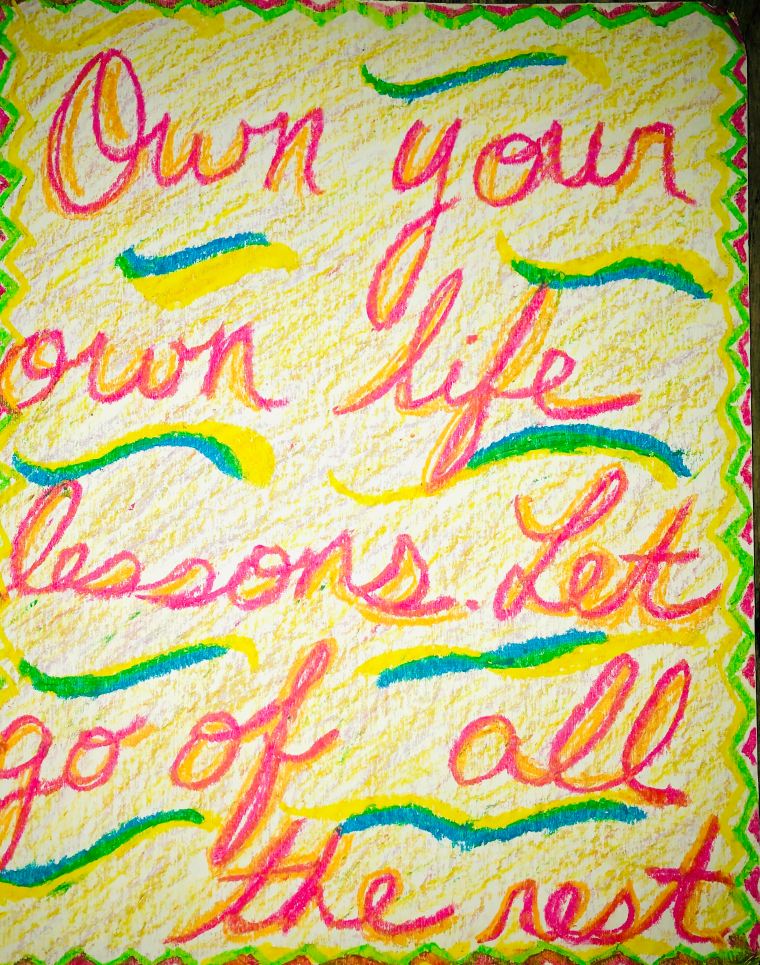 Own your
own life
lessons. Let
go of all
the rest.